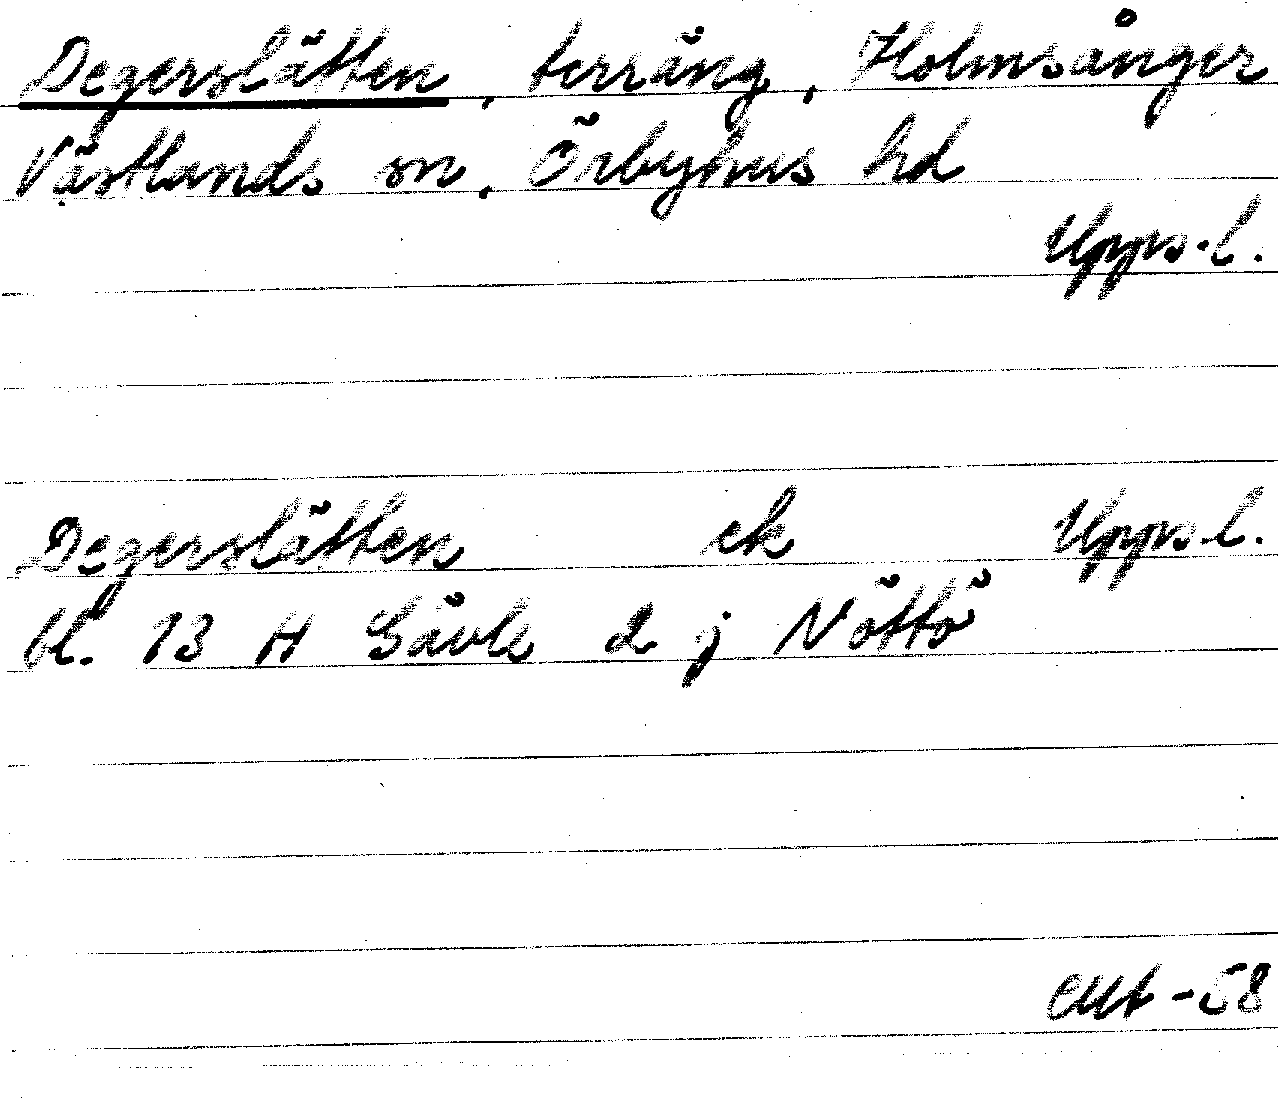 Degerslätten, terräng, Holmsånger
Västlands sn, Örbyhus hd
Upps.l.
Degerslätten ek Upps.l.
bl. 13 H Gävle 2 j Nöttö
-58